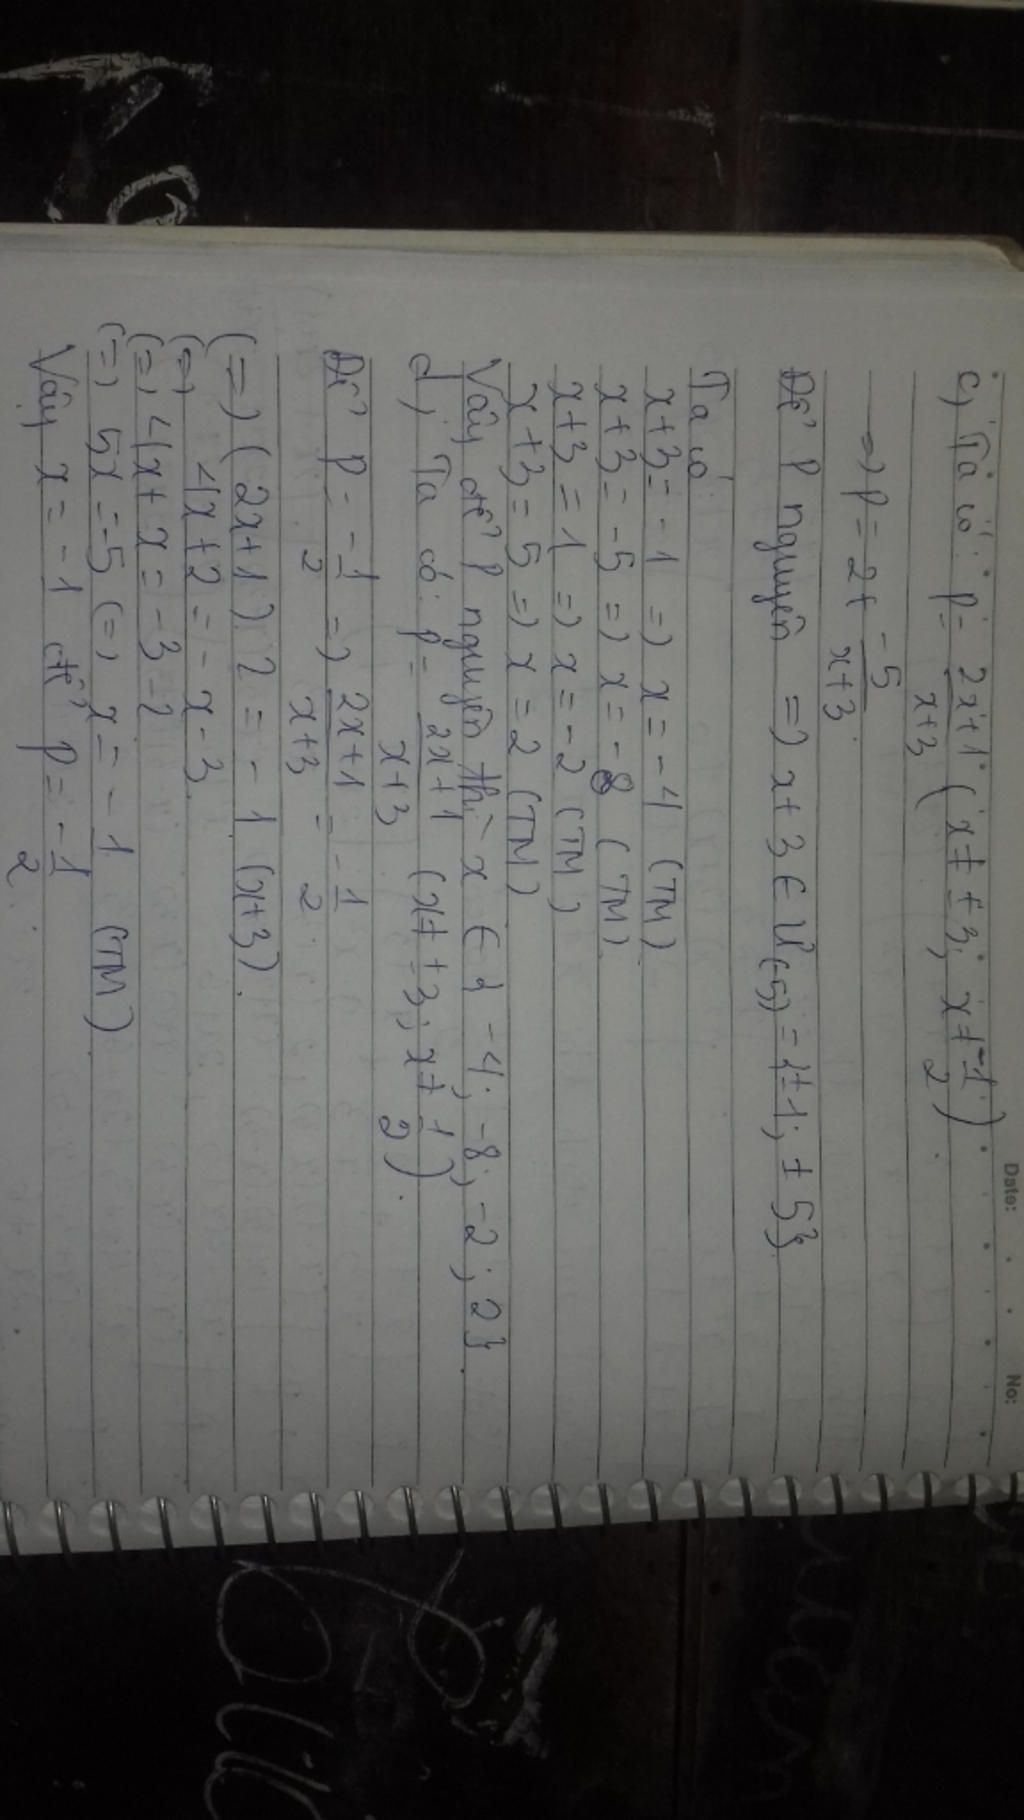 Date: No:
c, Ta có: P = 2x+1/x+3 (x ≠ ±3; x ≠ -1/2).
=> P = 2 + -5/x+3
Để P nguyên => x + 3 ∈ Ư(-5) = {±1; ±5}
Ta có:
x+3 = -1 => x = -4 (TM)
x+3 = -5 => x = -8 (TM)
x+3 = 1 => x = -2 (TM)
x+3 = 5 => x = 2 (TM)
Vậy để P nguyên thì x ∈ {-4; -8; -2; 2}.
d, Ta có: P = 2x+1/x+3 (x ≠ ±3; x ≠ 1/2).
Để P = -1/2 => 2x+1/x+3 = -1/2
(=) (2x+1) 2 = -1 (x+3).
(=) 4x+2 = -x-3
(=) 4x+x = -3-2
(=) 5x = -5 (=) x = -1 (TM)
Vậy x = -1 để P = -1/2.